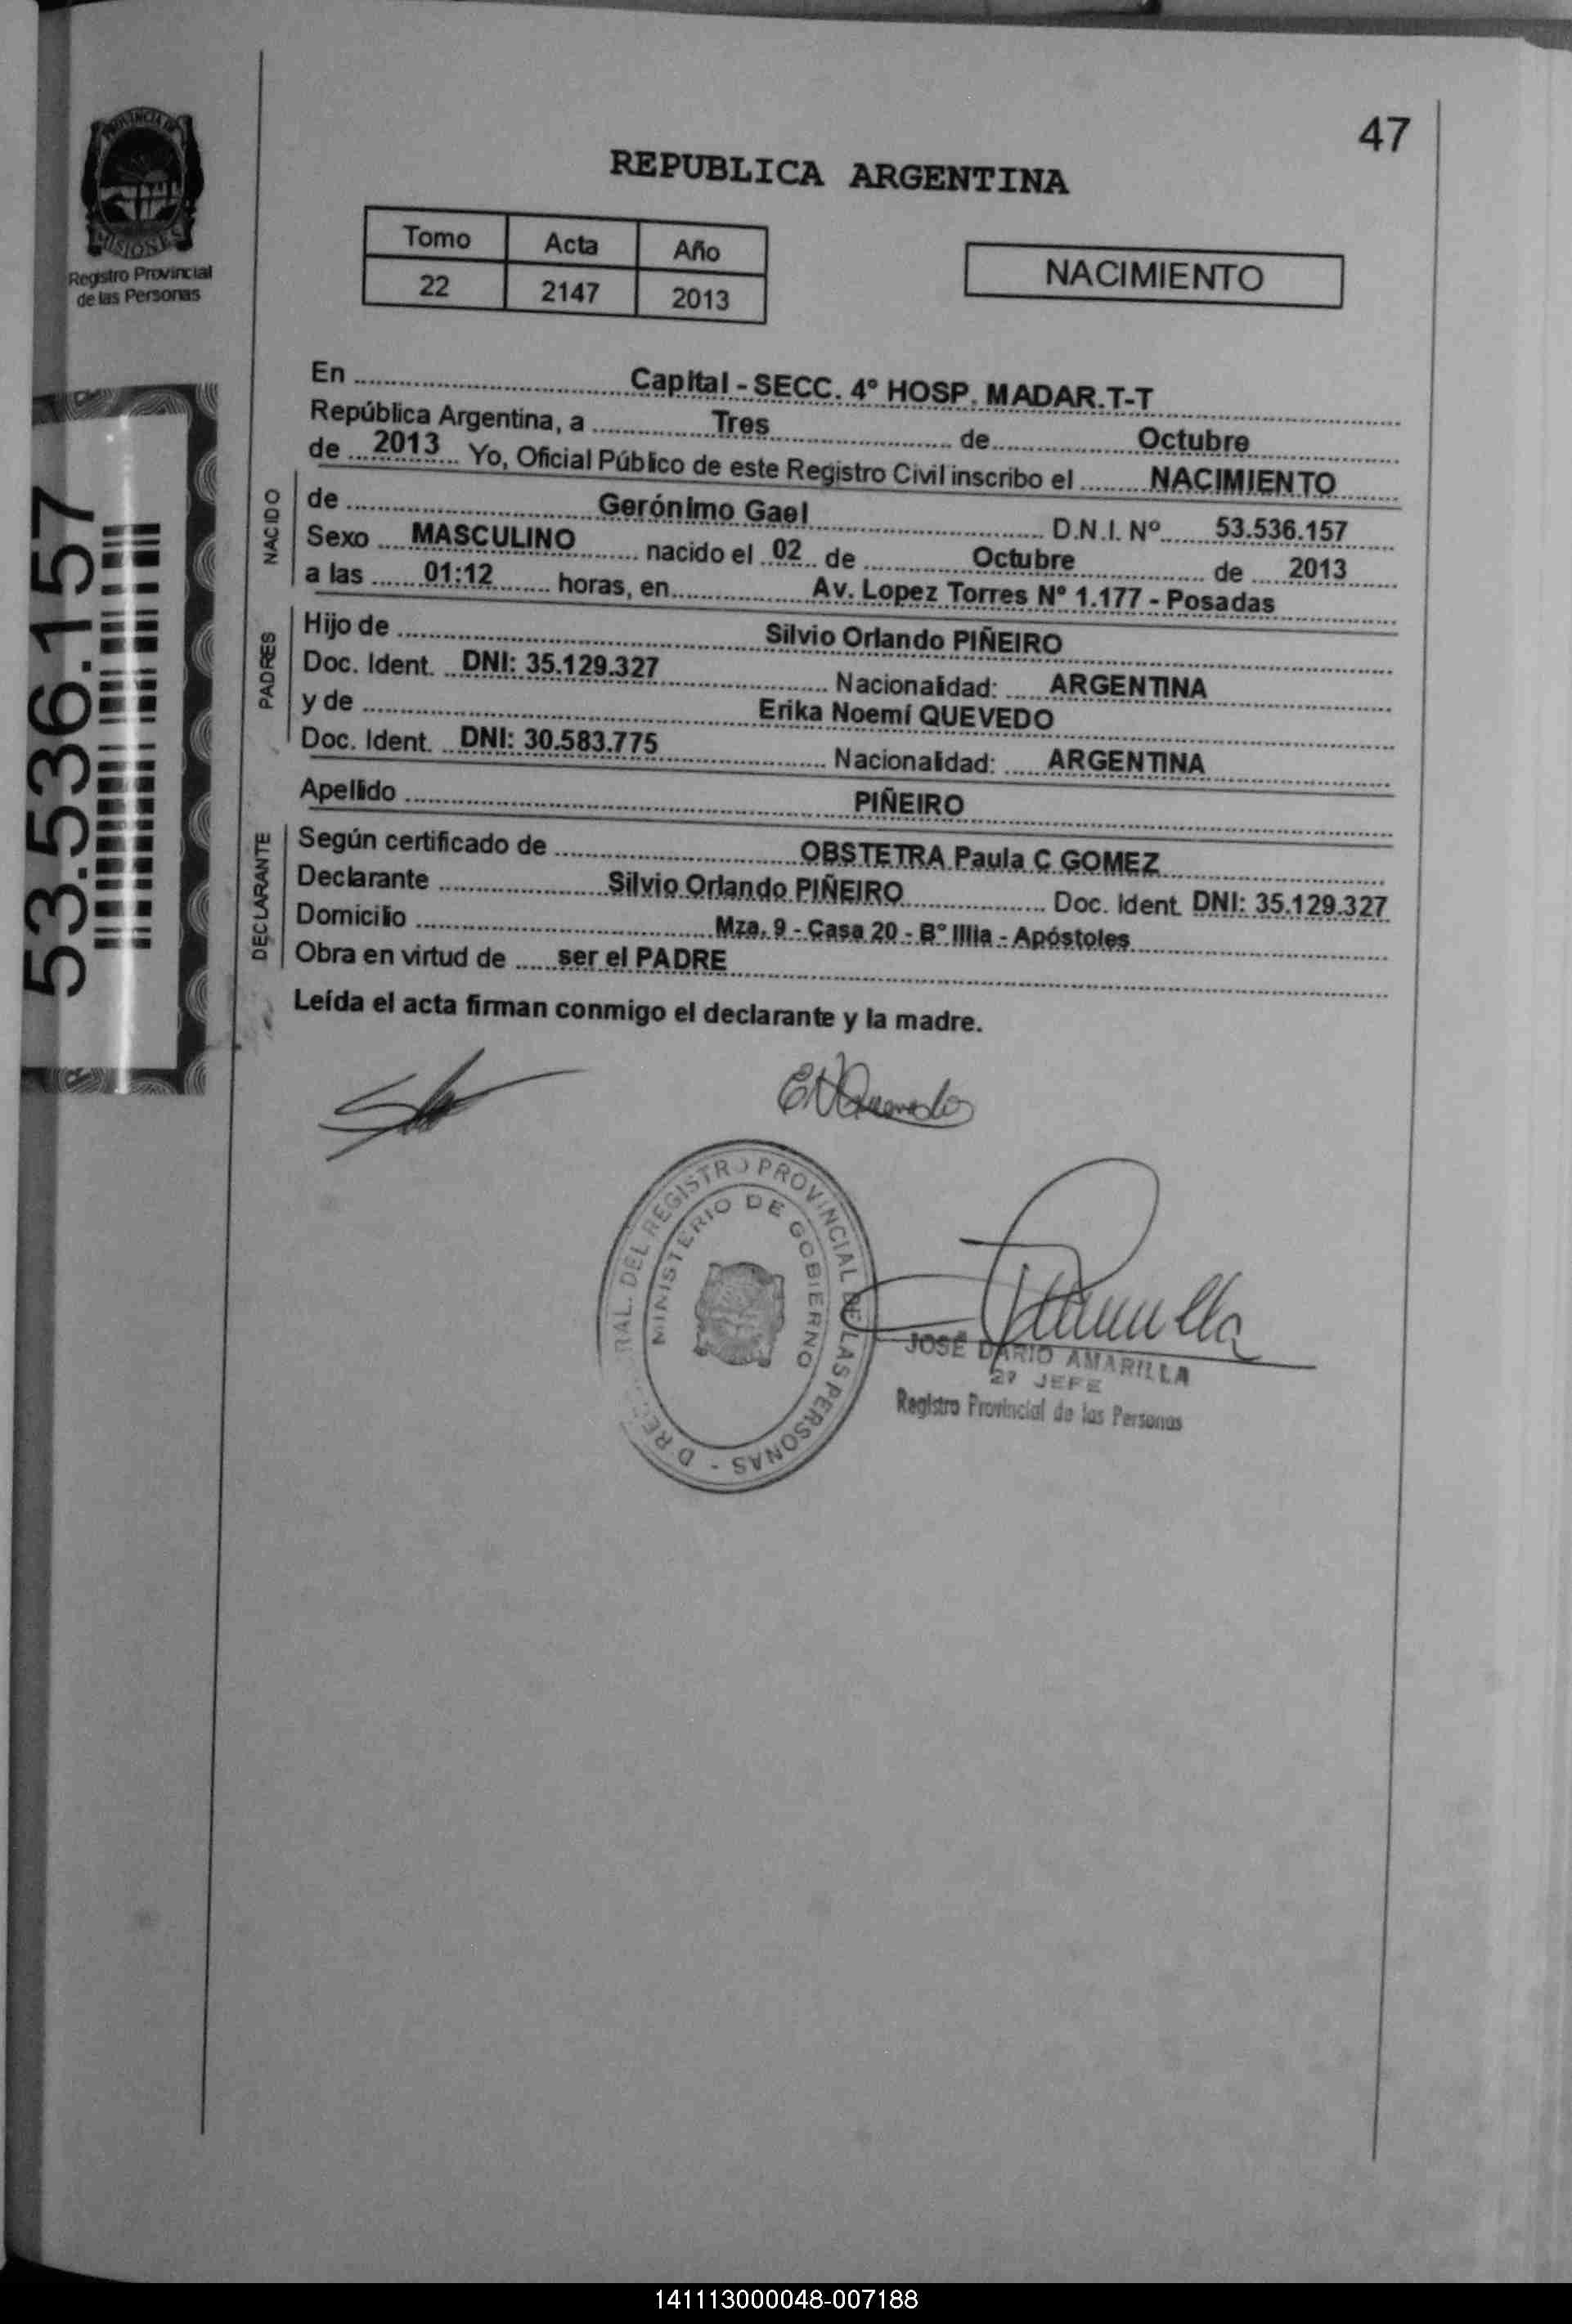 47
REPUBLICA ARGENTINA
PROVINCIA DE
MISIONES
Registro Provincial
de las Personas
Tomo Acta Año
22 2147 2013
NACIMIENTO
53.536.157
En Capital - SECC. 4° HOSP. MADAR.T-T
República Argentina, a Tres de Octubre
de 2013 Yo, Oficial Público de este Registro Civil inscribo el NACIMIENTO
NACIDO
de Gerónimo Gael D.N.I. Nº 53.536.157
Sexo MASCULINO nacido el 02 de Octubre de 2013
a las 01:12 horas, en Av. Lopez Torres Nº 1.177 - Posadas
PADRES
Hijo de Silvio Orlando PIÑEIRO
Doc. Ident. DNI: 35.129.327 Nacionalidad: ARGENTINA
y de Erika Noemí QUEVEDO
Doc. Ident. DNI: 30.583.775 Nacionalidad: ARGENTINA
Apellido PIÑEIRO
DECLARANTE
Según certificado de OBSTETRA Paula C GOMEZ
Declarante Silvio Orlando PIÑEIRO Doc. Ident. DNI: 35.129.327
Domicilio Mza. 9 - Casa 20 - B° Illia - Apóstoles
Obra en virtud de ser el PADRE
Leída el acta firman conmigo el declarante y la madre.
EN Quevedo
DEL REGISTRO PROVINCIAL DE LAS PERSONAS -
MINISTERIO DE GOBIERNO
JOSÉ DARIO AMARILLA
2º JEFE
Registro Provincial de las Personas
141113000048-007188